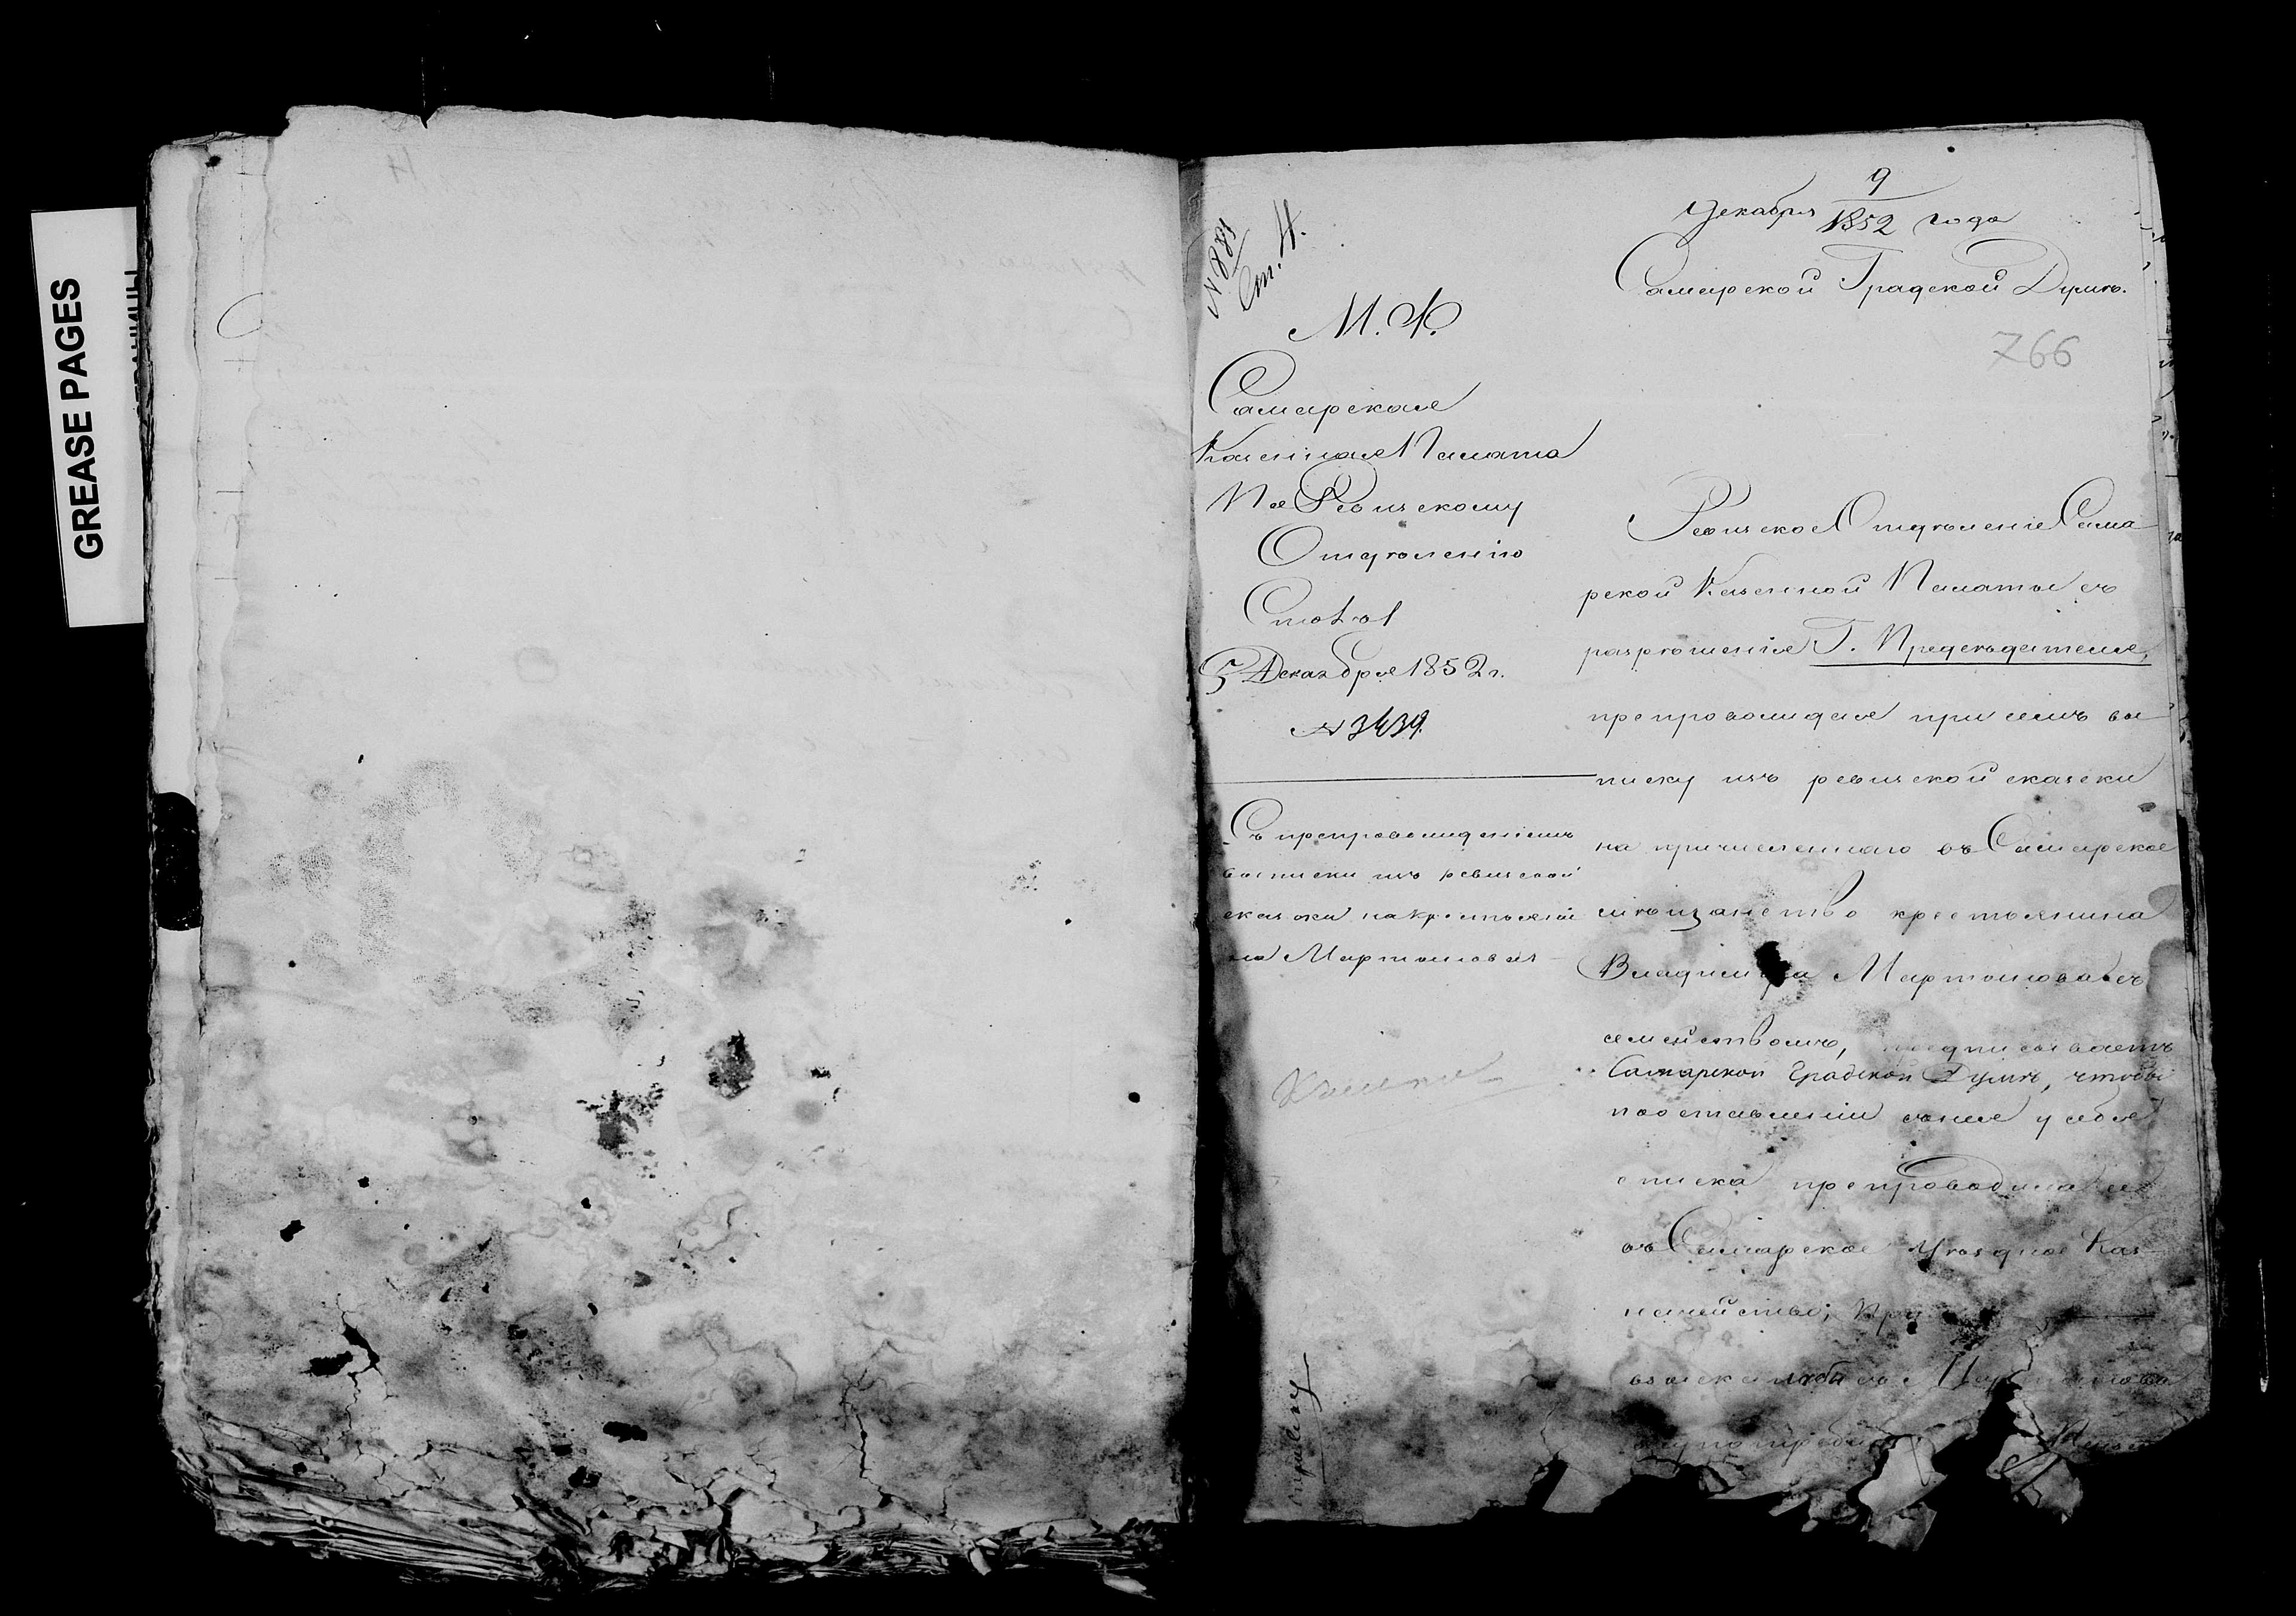 GREASE PAGES
№ 881
Ст. 4.
М. Ф.
Самарская
Казенная Палата
По Ревизскому
Отделению
Столъ 1
5 Декабря 1852 г.
№ 3439.
Съ препровожденіемъ
выписки изъ ревизской
сказки на крестьяни
на Мартынова
9
Декабря 1852 года
Самарской Градской Думѣ.
766
Ревизское Отдѣленіе Сама
рской Казенной Палаты съ
разрѣшенія Г. Предсѣдателя,
препровождая при семъ вы
писку изъ ревизской сказки
на причисленнаго въ Самарское
мѣщанство крестьянина
Владиміра Мартынова съ
семействомъ, предписываетъ
Самарской Градской Думѣ, чтобы
по оставленіи съ нея у себя
списка препроводила ее
въ Самарское Уѣздное Каз
начейство;